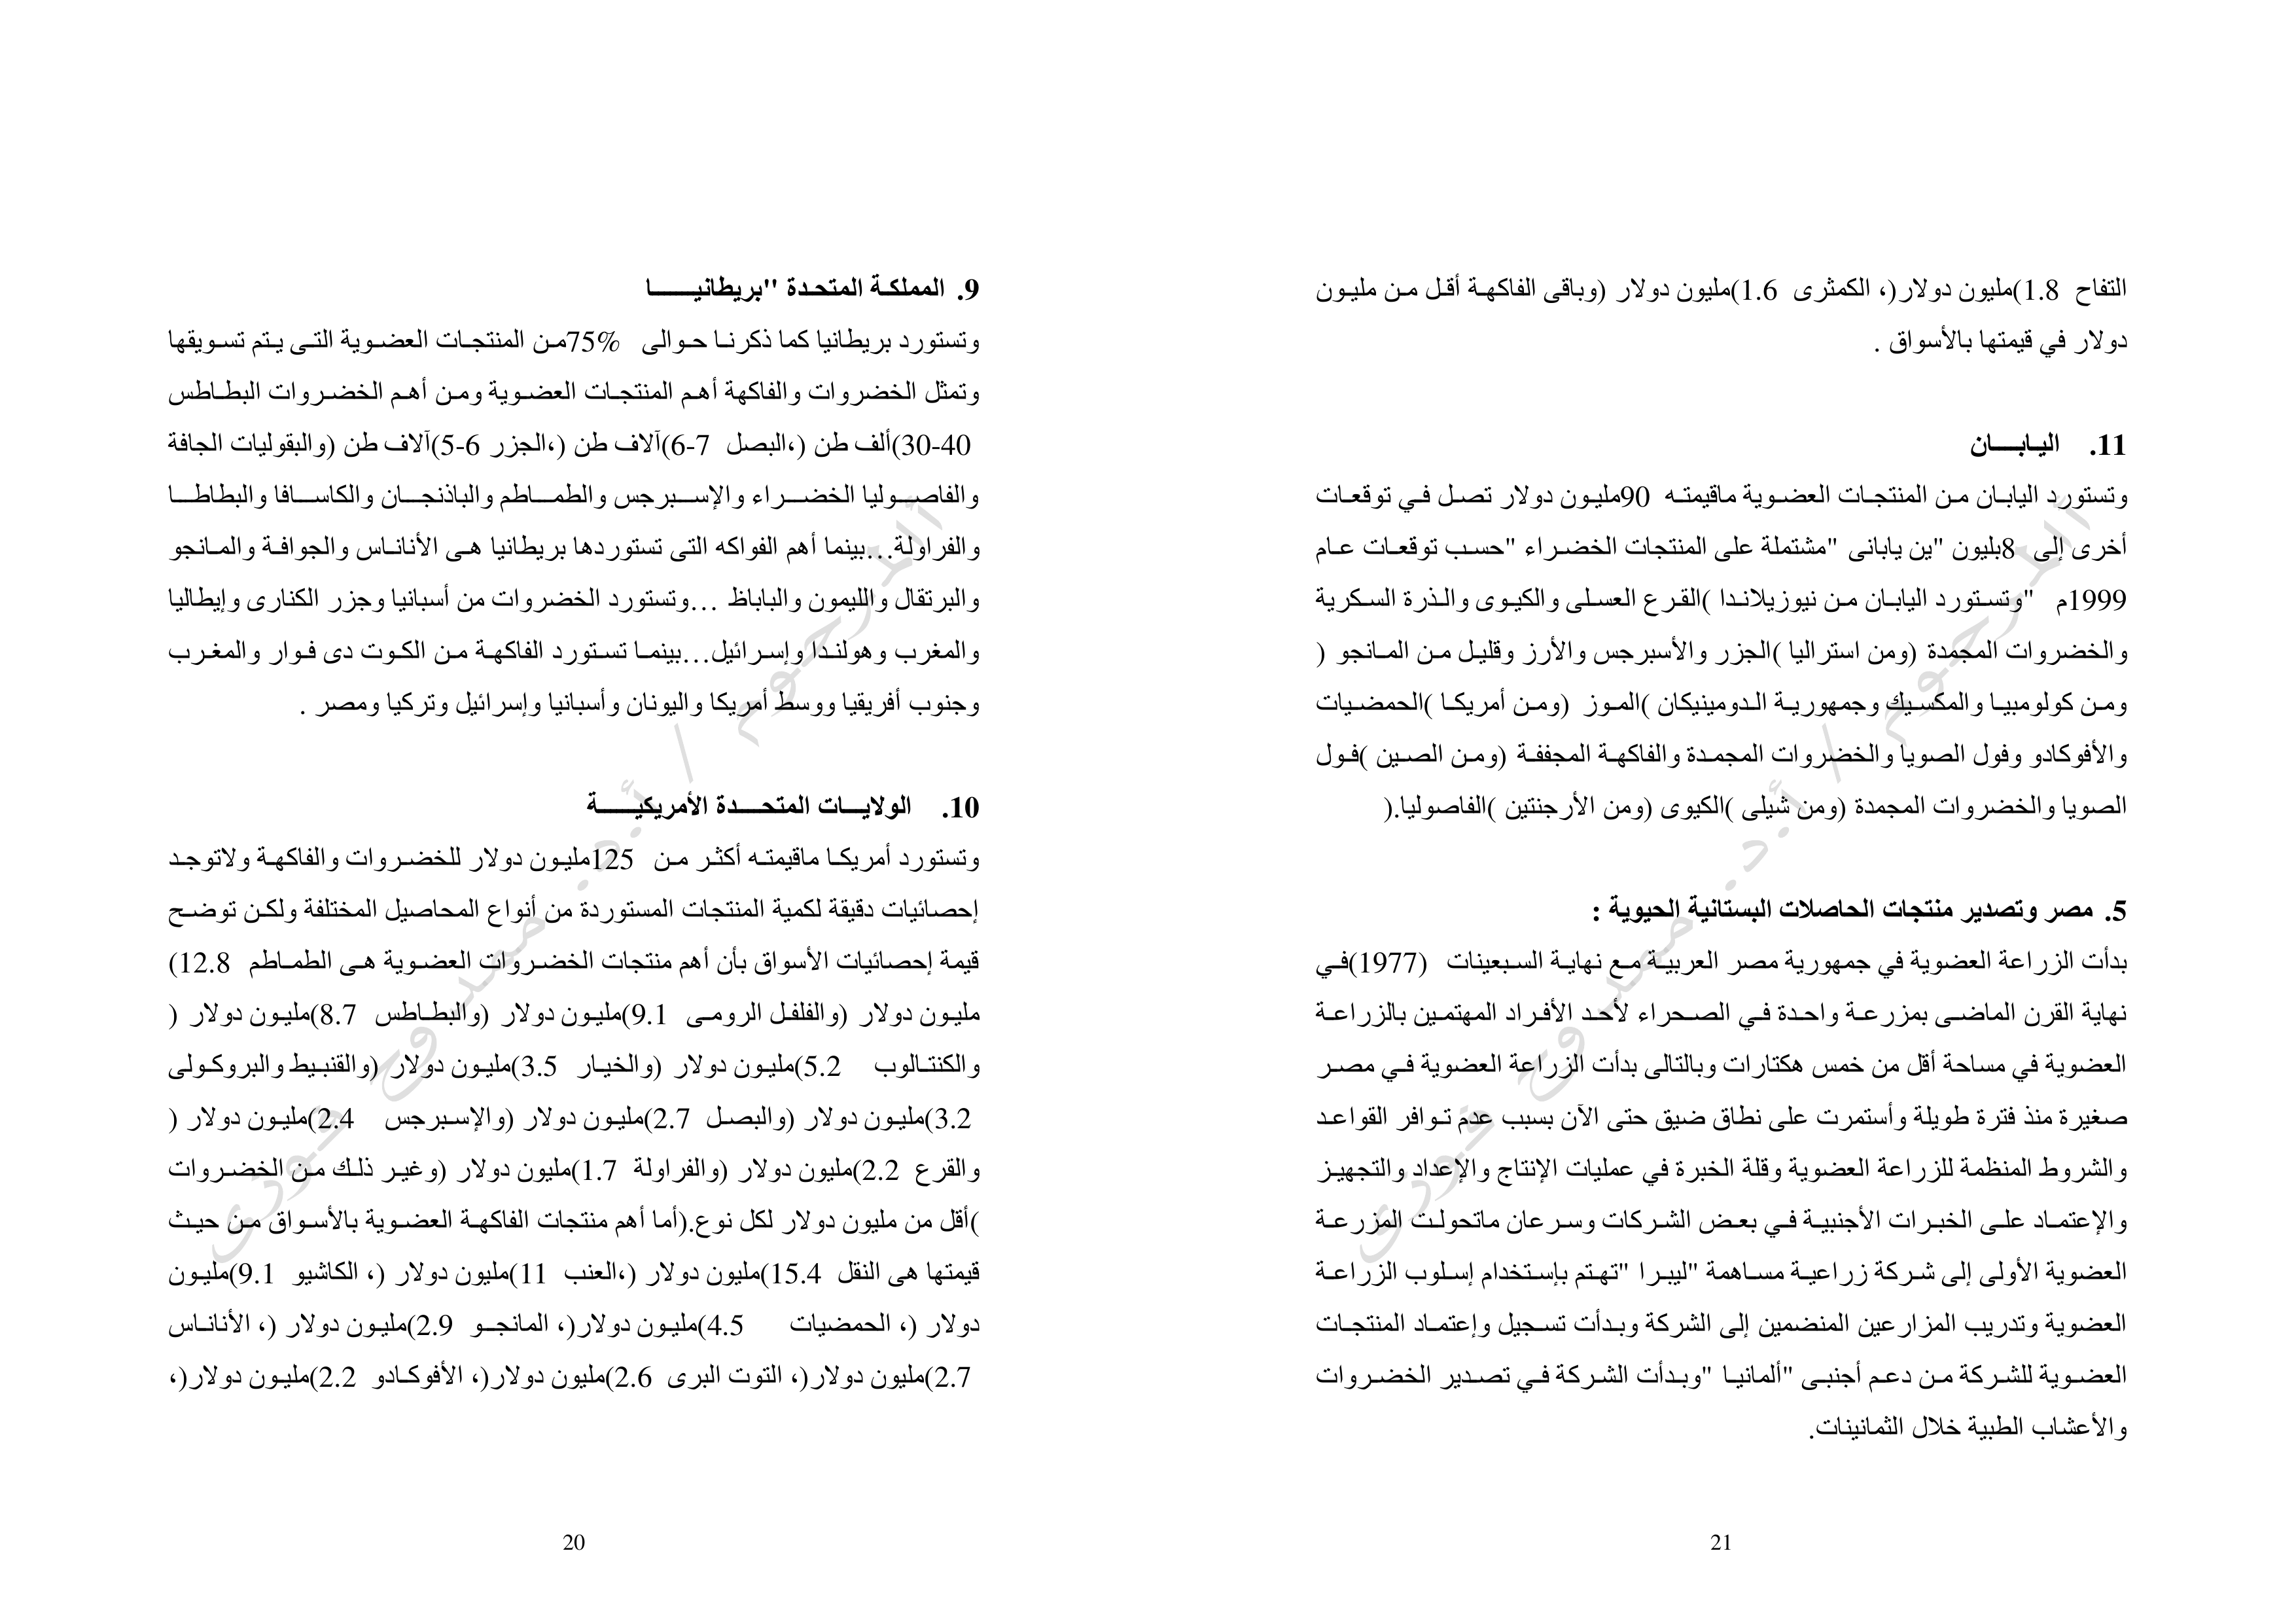 9. المملكة المتحدة "بريطانيا
وتستورد بريطانيا كما ذكرنا حوالى 75% من المنتجات العضوية التى يتم تسويقها
وتمثل الخضروات والفاكهة أهم المنتجات العضوية ومن أهم الخضروات البطاطس
30-40)ألف طن (،البصل 6-7)آلاف طن (،الجزر 5-6)آلاف طن (والبقوليات الجافة
والفاصوليا الخضراء والإسبرجس والطماطم والباذنجان والكاسافا والبطاطا
والفراولة...بينما أهم الفواكه التى تستوردها بريطانيا هى الأناناس والجوافة والمانجو
والبرتقال والليمون والباباظ ...وتستورد الخضروات من أسبانيا وجزر الكنارى وإيطاليا
والمغرب وهولندا وإسرائيل...بينما تستورد الفاكهة من الكوت دى فوار والمغرب
وجنوب أفريقيا ووسط أمريكا واليونان وأسبانيا وإسرائيل وتركيا ومصر .
10. الولايات المتحدة الأمريكية
وتستورد أمريكا ماقيمته أكثر من 125مليون دولار للخضروات والفاكهة ولاتوجد
إحصائيات دقيقة لكمية المنتجات المستوردة من أنواع المحاصيل المختلفة ولكن توضح
قيمة إحصائيات الأسواق بأن أهم منتجات الخضروات العضوية هى الطماطم 12.8)
مليون دولار (والفلفل الرومى 9.1)مليون دولار (والبطاطس 8.7)مليون دولار (
والكنتالوب 5.2)مليون دولار (والخيار 3.5)مليون دولار (والقنبيط والبروكولى
3.2)مليون دولار (والبصل 2.7)مليون دولار (والإسبرجس 2.4)مليون دولار (
والقرع 2.2)مليون دولار (والفراولة 1.7)مليون دولار (وغير ذلك من الخضروات
)أقل من مليون دولار لكل نوع.(أما أهم منتجات الفاكهة العضوية بالأسواق من حيث
قيمتها هى النقل 15.4)مليون دولار (،العنب 11)مليون دولار (، الكاشيو 9.1)مليون
دولار (، الحمضيات 4.5)مليون دولار(، المانجو 2.9)مليون دولار (، الأناناس
2.7)مليون دولار(، التوت البرى 2.6)مليون دولار(، الأفوكادو 2.2)مليون دولار(،
20
التفاح 1.8)مليون دولار(، الكمثرى 1.6)مليون دولار (وباقى الفاكهة أقل من مليون
دولار في قيمتها بالأسواق .
11. اليابان
وتستورد اليابان من المنتجات العضوية ماقيمته 90مليون دولار تصل في توقعات
أخرى إلى 8بليون "ين يابانى "مشتملة على المنتجات الخضراء "حسب توقعات عام
1999م "وتستورد اليابان من نيوزيلاندا )القرع العسلى والكيوى والذرة السكرية
والخضروات المجمدة (ومن استراليا )الجزر والأسبرجس والأرز وقليل من المانجو (
ومن كولومبيا والمكسيك وجمهورية الدومينيكان )الموز (ومن أمريكا )الحمضيات
والأفوكادو وفول الصويا والخضروات المجمدة والفاكهة المجففة (ومن الصين )فول
الصويا والخضروات المجمدة (ومن شيلى )الكيوى (ومن الأرجنتين )الفاصوليا.(
5. مصر وتصدير منتجات الحاصلات البستانية الحيوية :
بدأت الزراعة العضوية في جمهورية مصر العربية مع نهاية السبعينات (1977)في
نهاية القرن الماضى بمزرعة واحدة في الصحراء لأحد الأفراد المهتمين بالزراعة
العضوية في مساحة أقل من خمس هكتارات وبالتالى بدأت الزراعة العضوية في مصر
صغيرة منذ فترة طويلة وأستمرت على نطاق ضيق حتى الآن بسبب عدم توافر القواعد
والشروط المنظمة للزراعة العضوية وقلة الخبرة في عمليات الإنتاج والإعداد والتجهيز
والإعتماد على الخبرات الأجنبية في بعض الشركات وسرعان ماتحولت المزرعة
العضوية الأولى إلى شركة زراعية مساهمة "ليبرا "تهتم بإستخدام إسلوب الزراعة
العضوية وتدريب المزارعين المنضمين إلى الشركة وبدأت تسجيل وإعتماد المنتجات
العضوية للشركة من دعم أجنبى "ألمانيا "وبدأت الشركة في تصدير الخضروات
والأعشاب الطبية خلال الثمانينات.
21
المرحوم / أ.د. ممدوح فوزى
المرحوم / أ.د. ممدوح فوزى